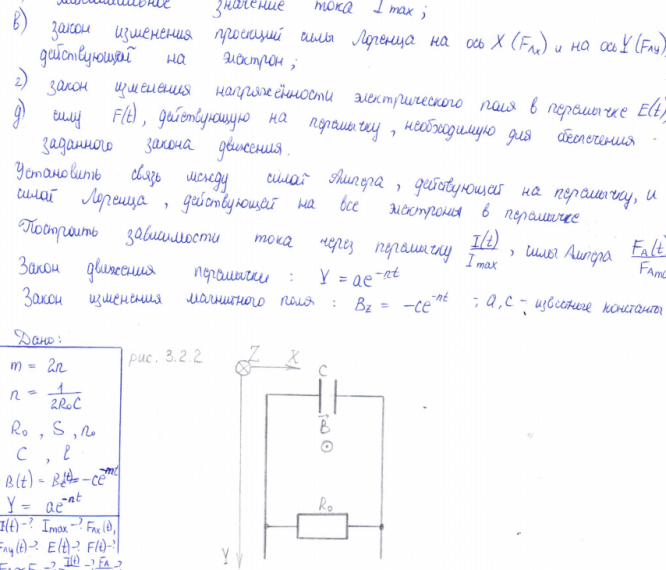 значение тока I max ;
в) закон изменения проекций силы Лоренца на ось X (Fлx) и на ось Y (Fлy)
действующей на электрон ;
г) закон изменения напряжённости электрического поля в перемычке E(t),
д) силу F(t), действующую на перемычку, необходимую для обеспечения
заданного закона движения.
Установить связь между силой Ампера, действующей на перемычку, и
силой Лоренца, действующей на все электроны в перемычке
Построить зависимости тока через перемычку I(t)/Imax, силы Ампера FA(t)/FAma
Закон движения перемычки : Y = ae^-nt
Закон изменения магнитного поля : Bz = -ce^-nt ; a,c - известные константы
Дано:
m = 2n
n = 1/2R₀C
R₀, S, n₀
C, l
B(t) = Bz(t) = -ce^-mt
Y = ae^-nt
I(t)-? Imax-? Fлx(t),
Fлy(t)-? E(t)-? F(t)-?
рис. 3.2.2
Z X
C
B
R₀
Y